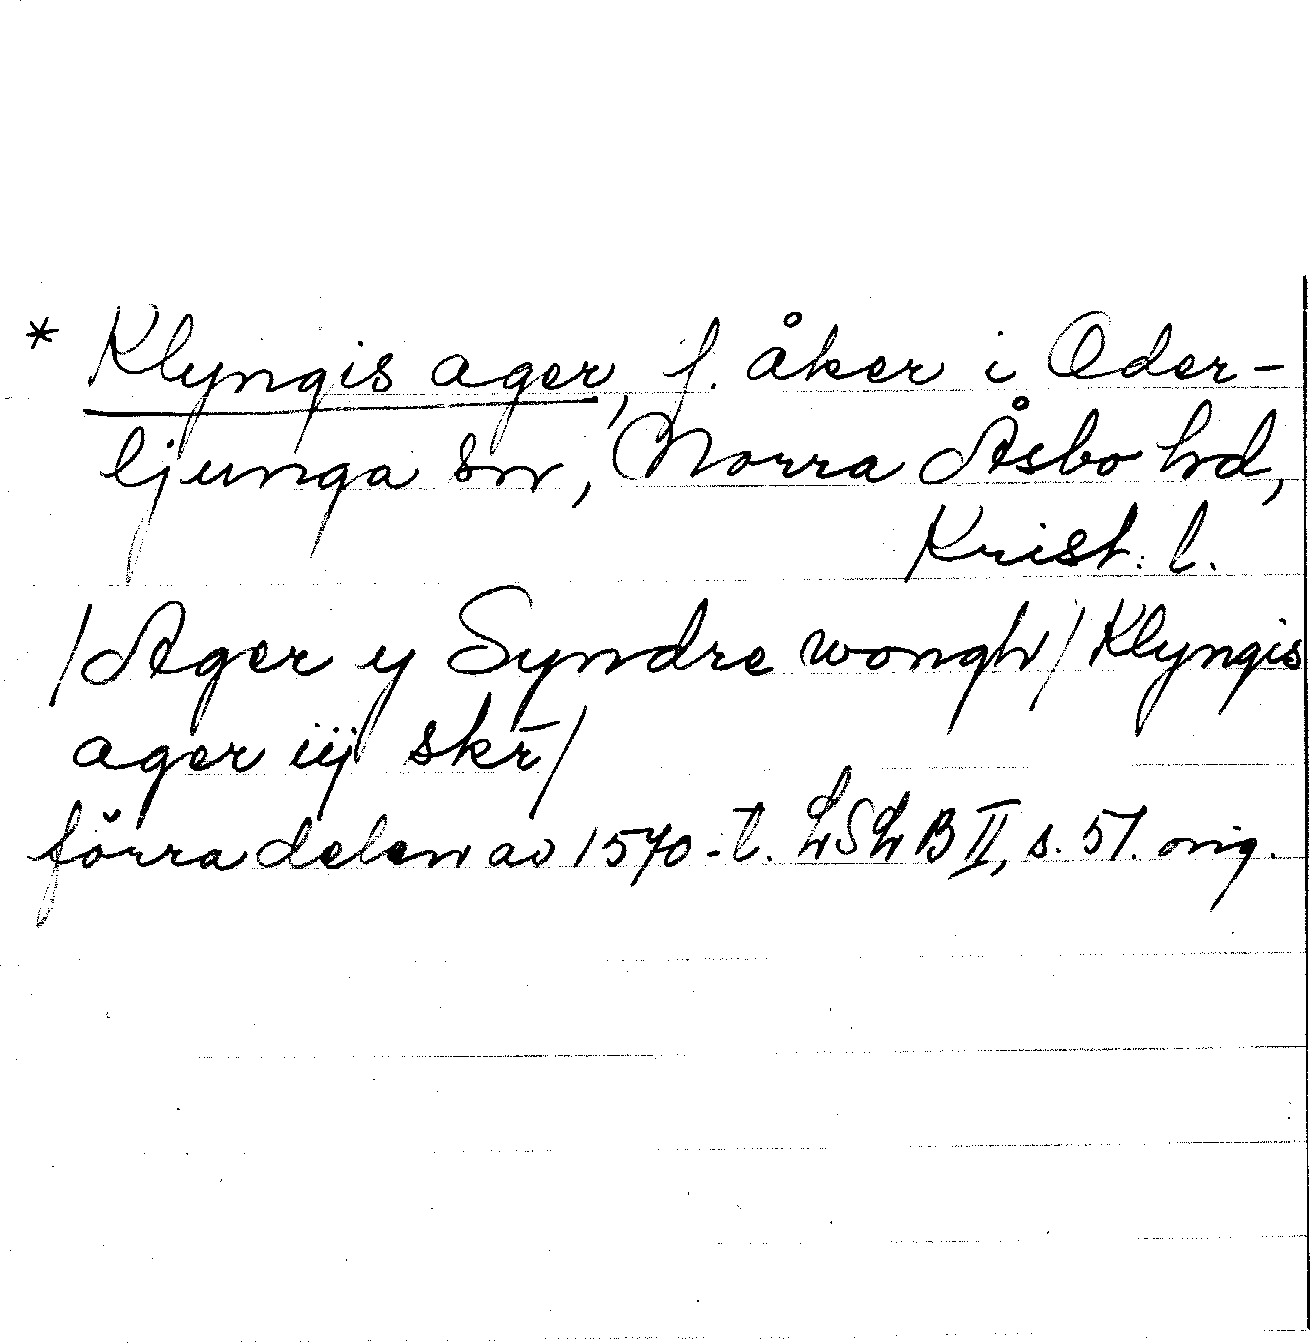 * Klyngis ager, f. åker i Oder-
ljunga sn, Norra Åsbo hd,
Krist. l.
/Ager y Syndre wongh/ Klyngis
ager iij skr̄/
förra delen av 1570-t. LSLB II, s. 51. orig.